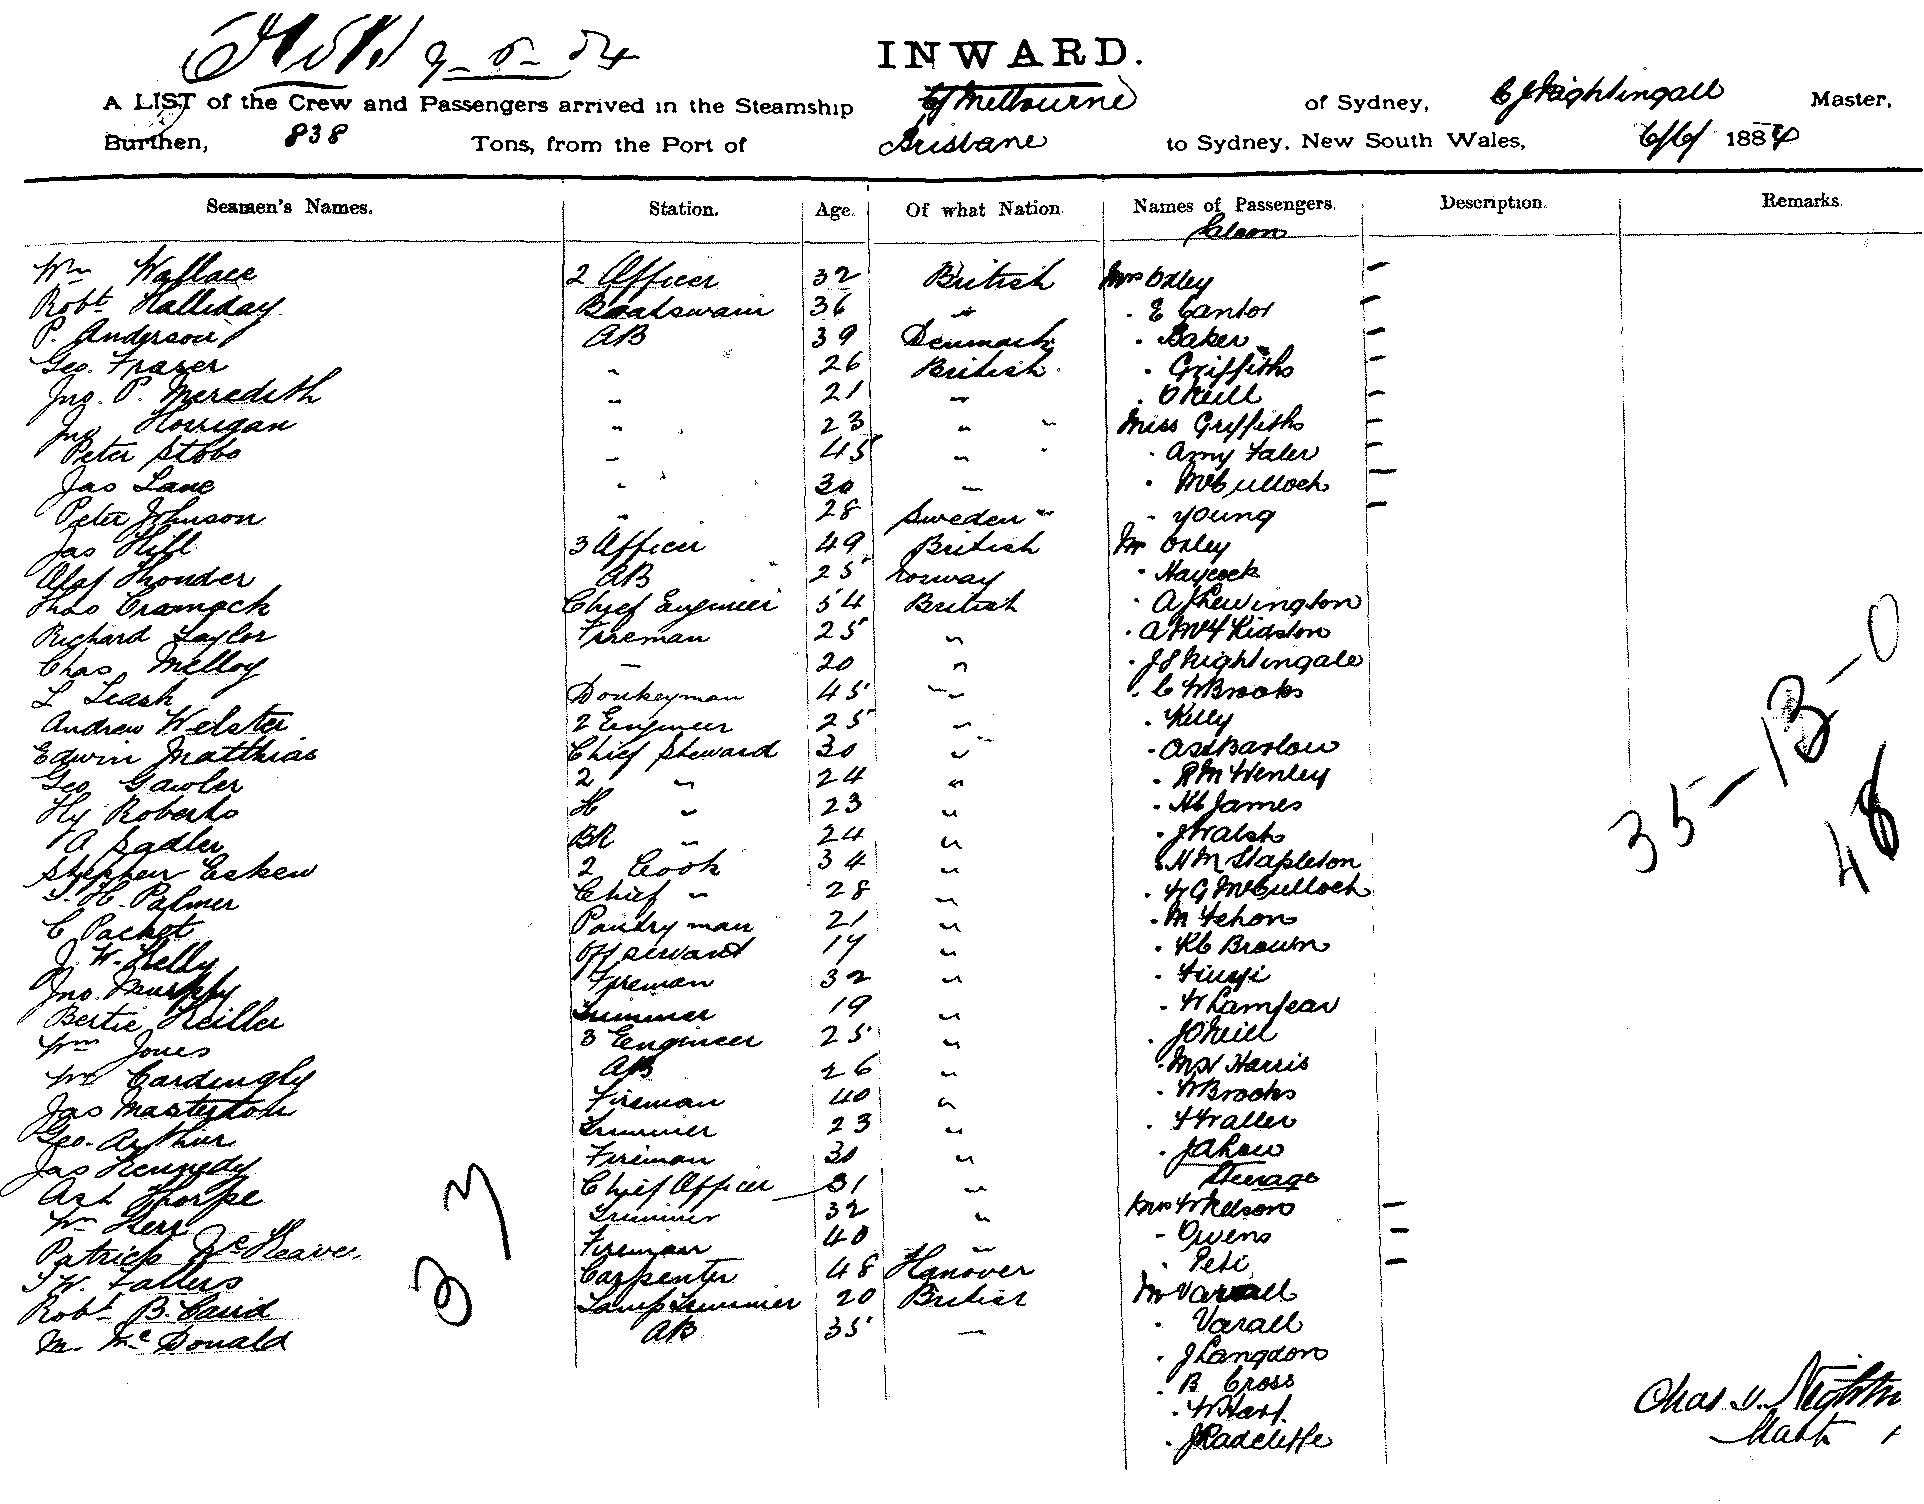 9-6-84
INWARD.
A LIST of the Crew and Passengers arrived in the Steamship Cy Melbourne of Sydney, C J Nightingall Master,
Burthen, 838 Tons, from the Port of Brisbane to Sydney, New South Wales, 6/6/ 1884
Seamen's Names. Station. Age. Of what Nation. Names of Passengers. Description. Remarks.
Saloon
Wm Wallace 2 Officer 32 British Mrs Oxley –
Robt Halliday Boatswain 36 " " E Cantor –
P. Anderson AB 39 Denmark " Baker –
Geo. Frazer " 26 British " Griffiths –
Jno. P. Meredith " 21 " " O'Neill –
Jno Horrigan " 23 " Miss Griffiths –
Peter Stobs " 45 " " Amy –
Jas Lane " 30 " " McCulloch –
Peter Johnson " 28 Sweden " Young –
Jas Hill 3 Officer 49 British Mr Oxley
Olaf Thonder AB 25 Norway " Haycock
Thos Cramock Chief Engineer 54 British "
Richard Taylor Fireman 25 " " Kidston
Chas Melloy – 20 " " J S Nightingale
L Leash Donkeyman 45 " " C W Brooks
Andrew Webster 2 Engineer 25 " " Kelly
Edwin Matthias Chief Steward 30 " " Barlow
Geo Gawler 2 " 24 " " R M Henley
Hy Roberts " 23 " " H C James
A Sadler BR " 24 " " J Walsh
Stephen Eskew 2 Cook 34 " " H M Stapleton
T. H. Palmer Chief " 28 " " W G McCulloch
C Packet Pantryman 21 " " M Fehon
J. W. Kelly Off servant 17 " " R C Brown
Jno. Murphy Fireman 32 "
Bertie Keiller Trimmer 19 "
Wm Jones 3 Engineer 25 " " J O'Neill
Wm Cardingly AB 26 " " Harris
Jas Masterton Fireman 40 " " W Brooks
Geo. Arthur Trimmer 23 " " F Waller
Jas Kennedy Fireman 30 " "
Steerage
Art Thorpe Chief Officer 31 " Mrs W Nelson –
Wm Kerr Trimmer 32 " " Owens –
Patrick Fireman 40 " " –
T W. Fallers Carpenter 48 Hanover Mr Varrall
Robt B. Caird Lamp Trimmer 20 British " Varall
M. McDonald AB 35 – " J Langdon
" B Cross
" W Hart
" J Radcliffe
37
35-13-0
48
Chas. J. Nightin